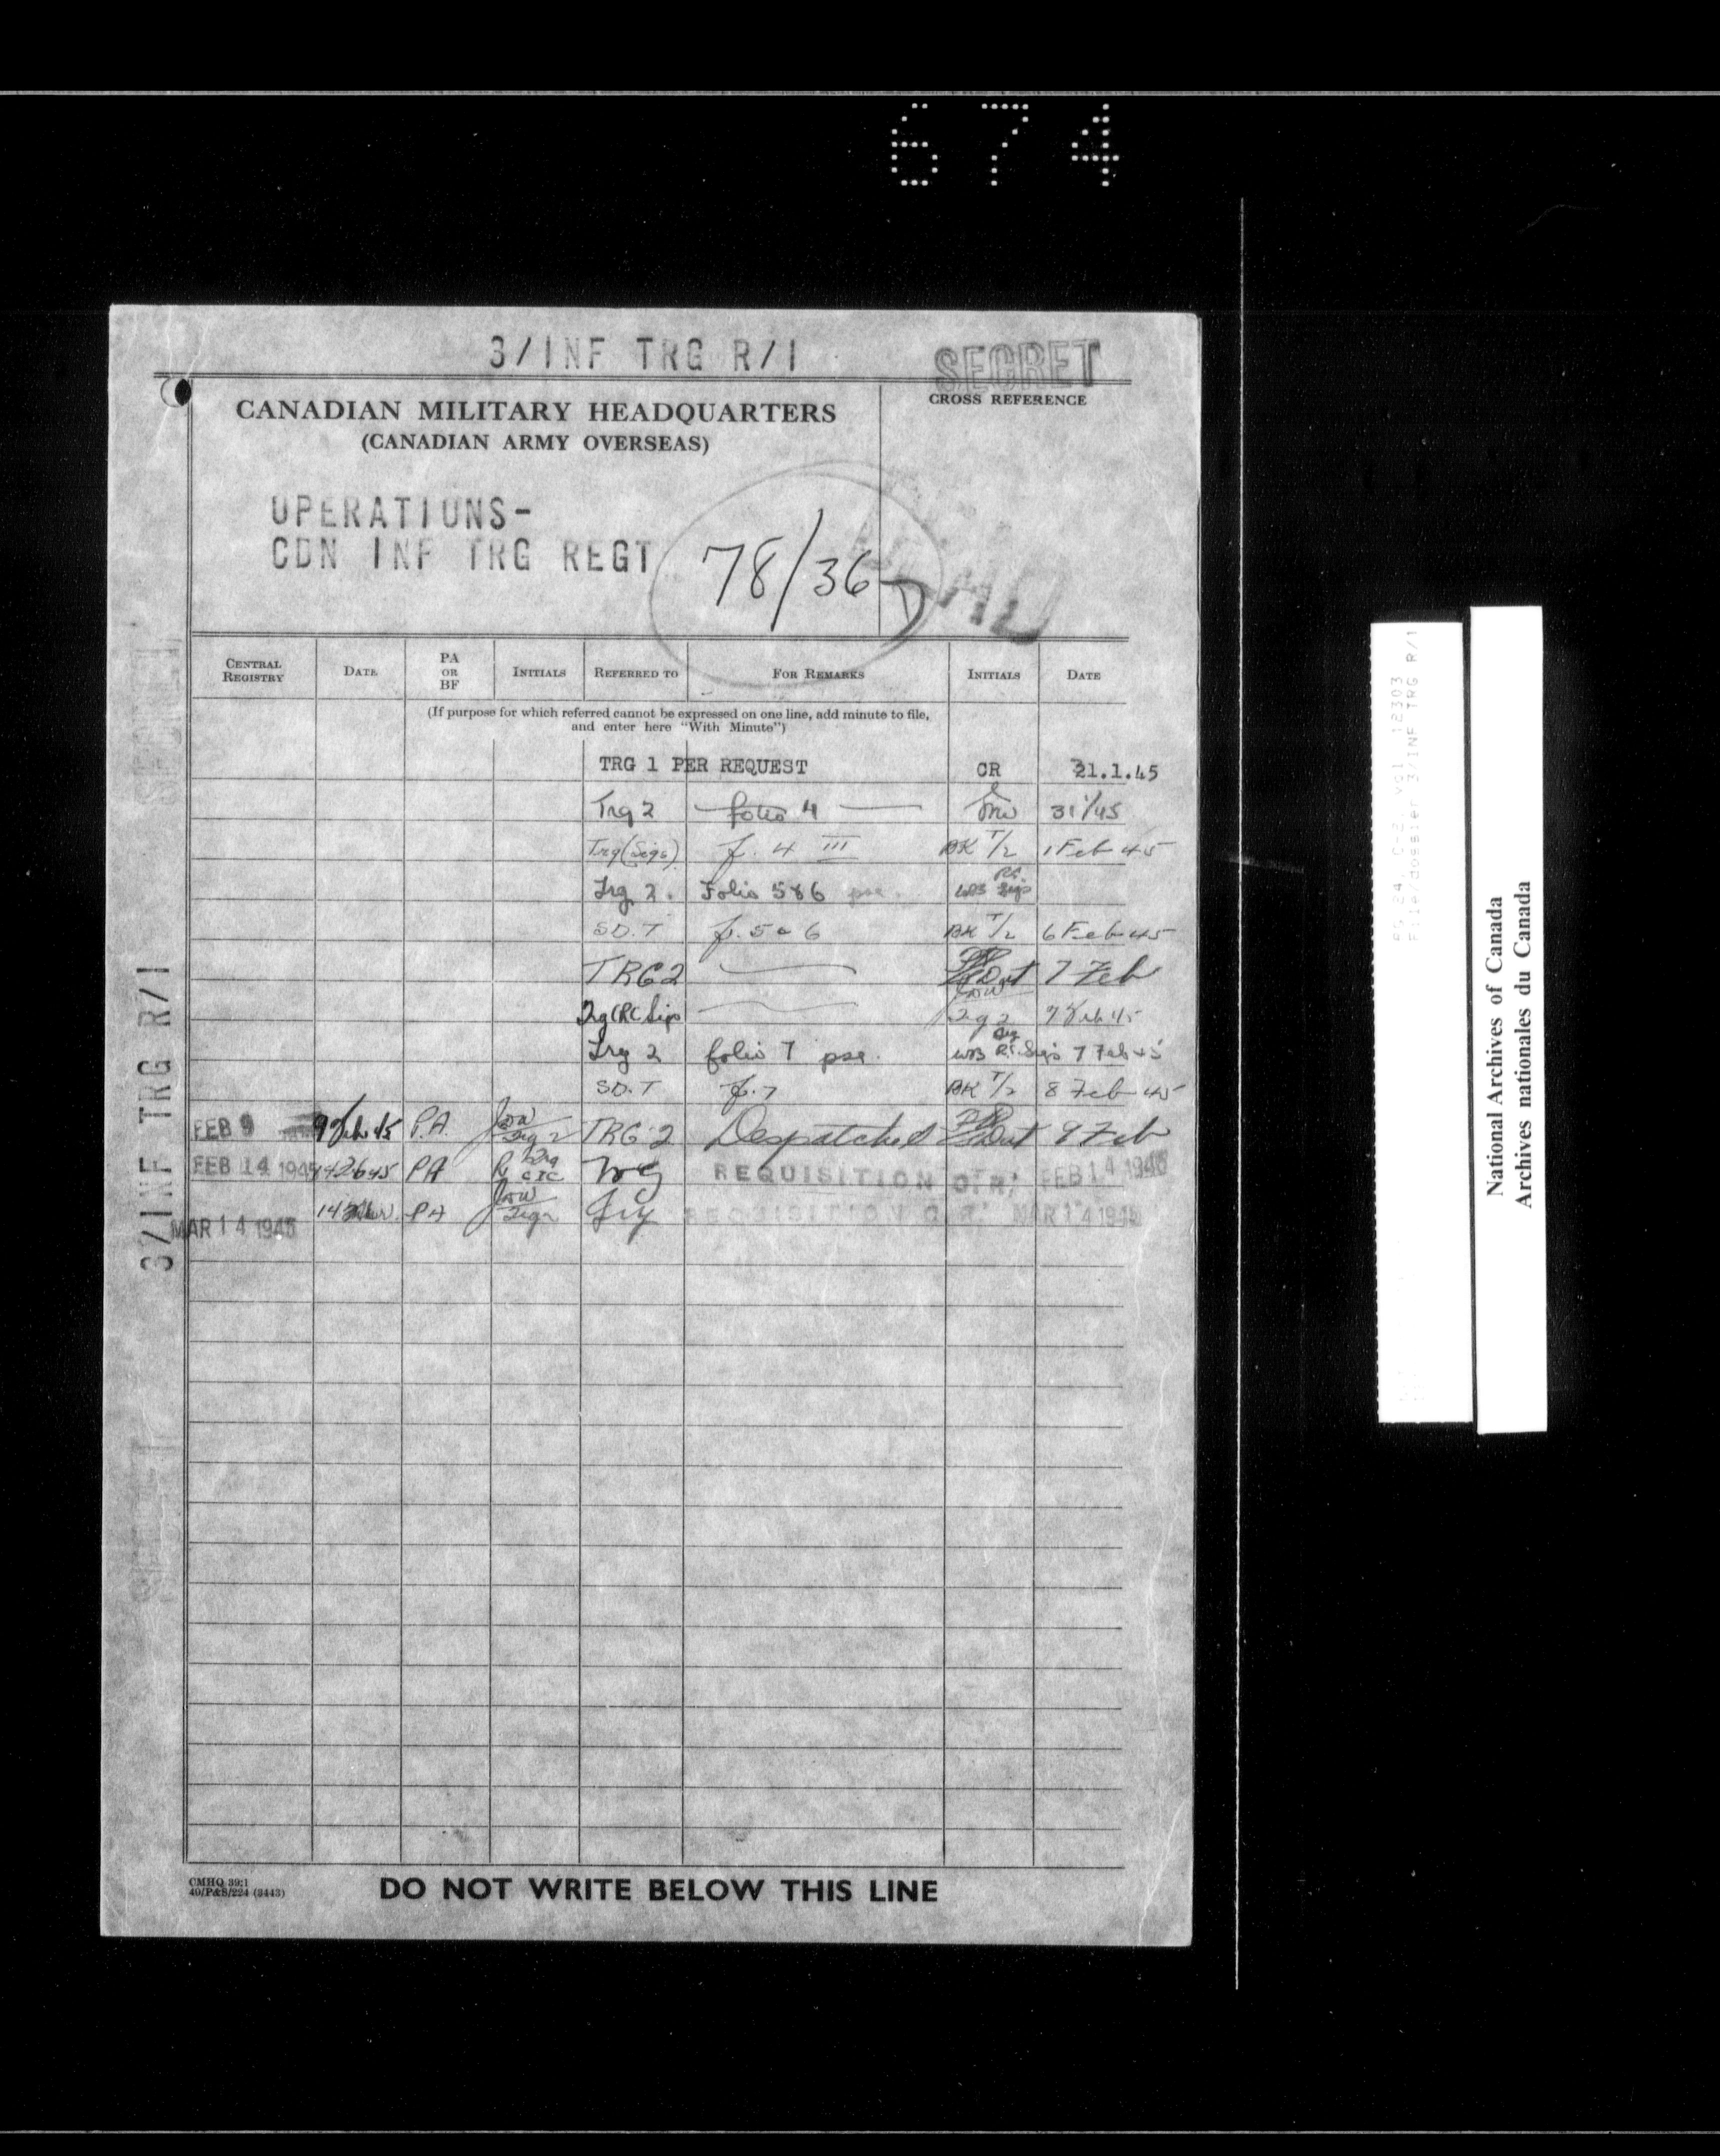 674
3/INF TRG R/1
SECRET
CROSS REFERENCE
CANADIAN MILITARY HEADQUARTERS
(CANADIAN ARMY OVERSEAS)
OPERATIONS-
CDN INF TRG REGT
78/36
CENTRAL REGISTRY DATE PA OR BF INITIALS REFERRED TO FOR REMARKS INITIALS DATE
(If purpose for which referred cannot be expressed on one line, add minute to file,
and enter here "With Minute")
TRG 1 PER REQUEST CR 21.1.45
Trg 2 folio 4 31/1/45
Trg (Sigs) f. 4 III BK T/2 1 Feb 45
Trg 2. Folio 5&6 pse. WB RC Sigs
SD.T f. 5 & 6 BK T/2 6 Feb 45
TRG 2 7 Feb
Trg (RC Sigs Trg 2 7 Feb 45
Trg 2 folio 7 pse. WB R.C. Sigs 7 Feb 45
SD.T f. 7 BK T/2 8 Feb 45
FEB 9 9 Feb 45 P.A. Trg 2 TRG 2 Despatched 9 Feb
FEB 14 1945 14-2-45 PA Trg REQUISITION C.R. FEB 14 1945
MAR 14 1945 PA REQUISITION C.R. MAR 14 1945
3/INF TRG R/1
CMHQ 39:1
40/P&S/224 (3443)
DO NOT WRITE BELOW THIS LINE
RG 24, C-2, vol. 12303
File/dossier 3/INF TRG R/1
National Archives of Canada
Archives nationales du Canada